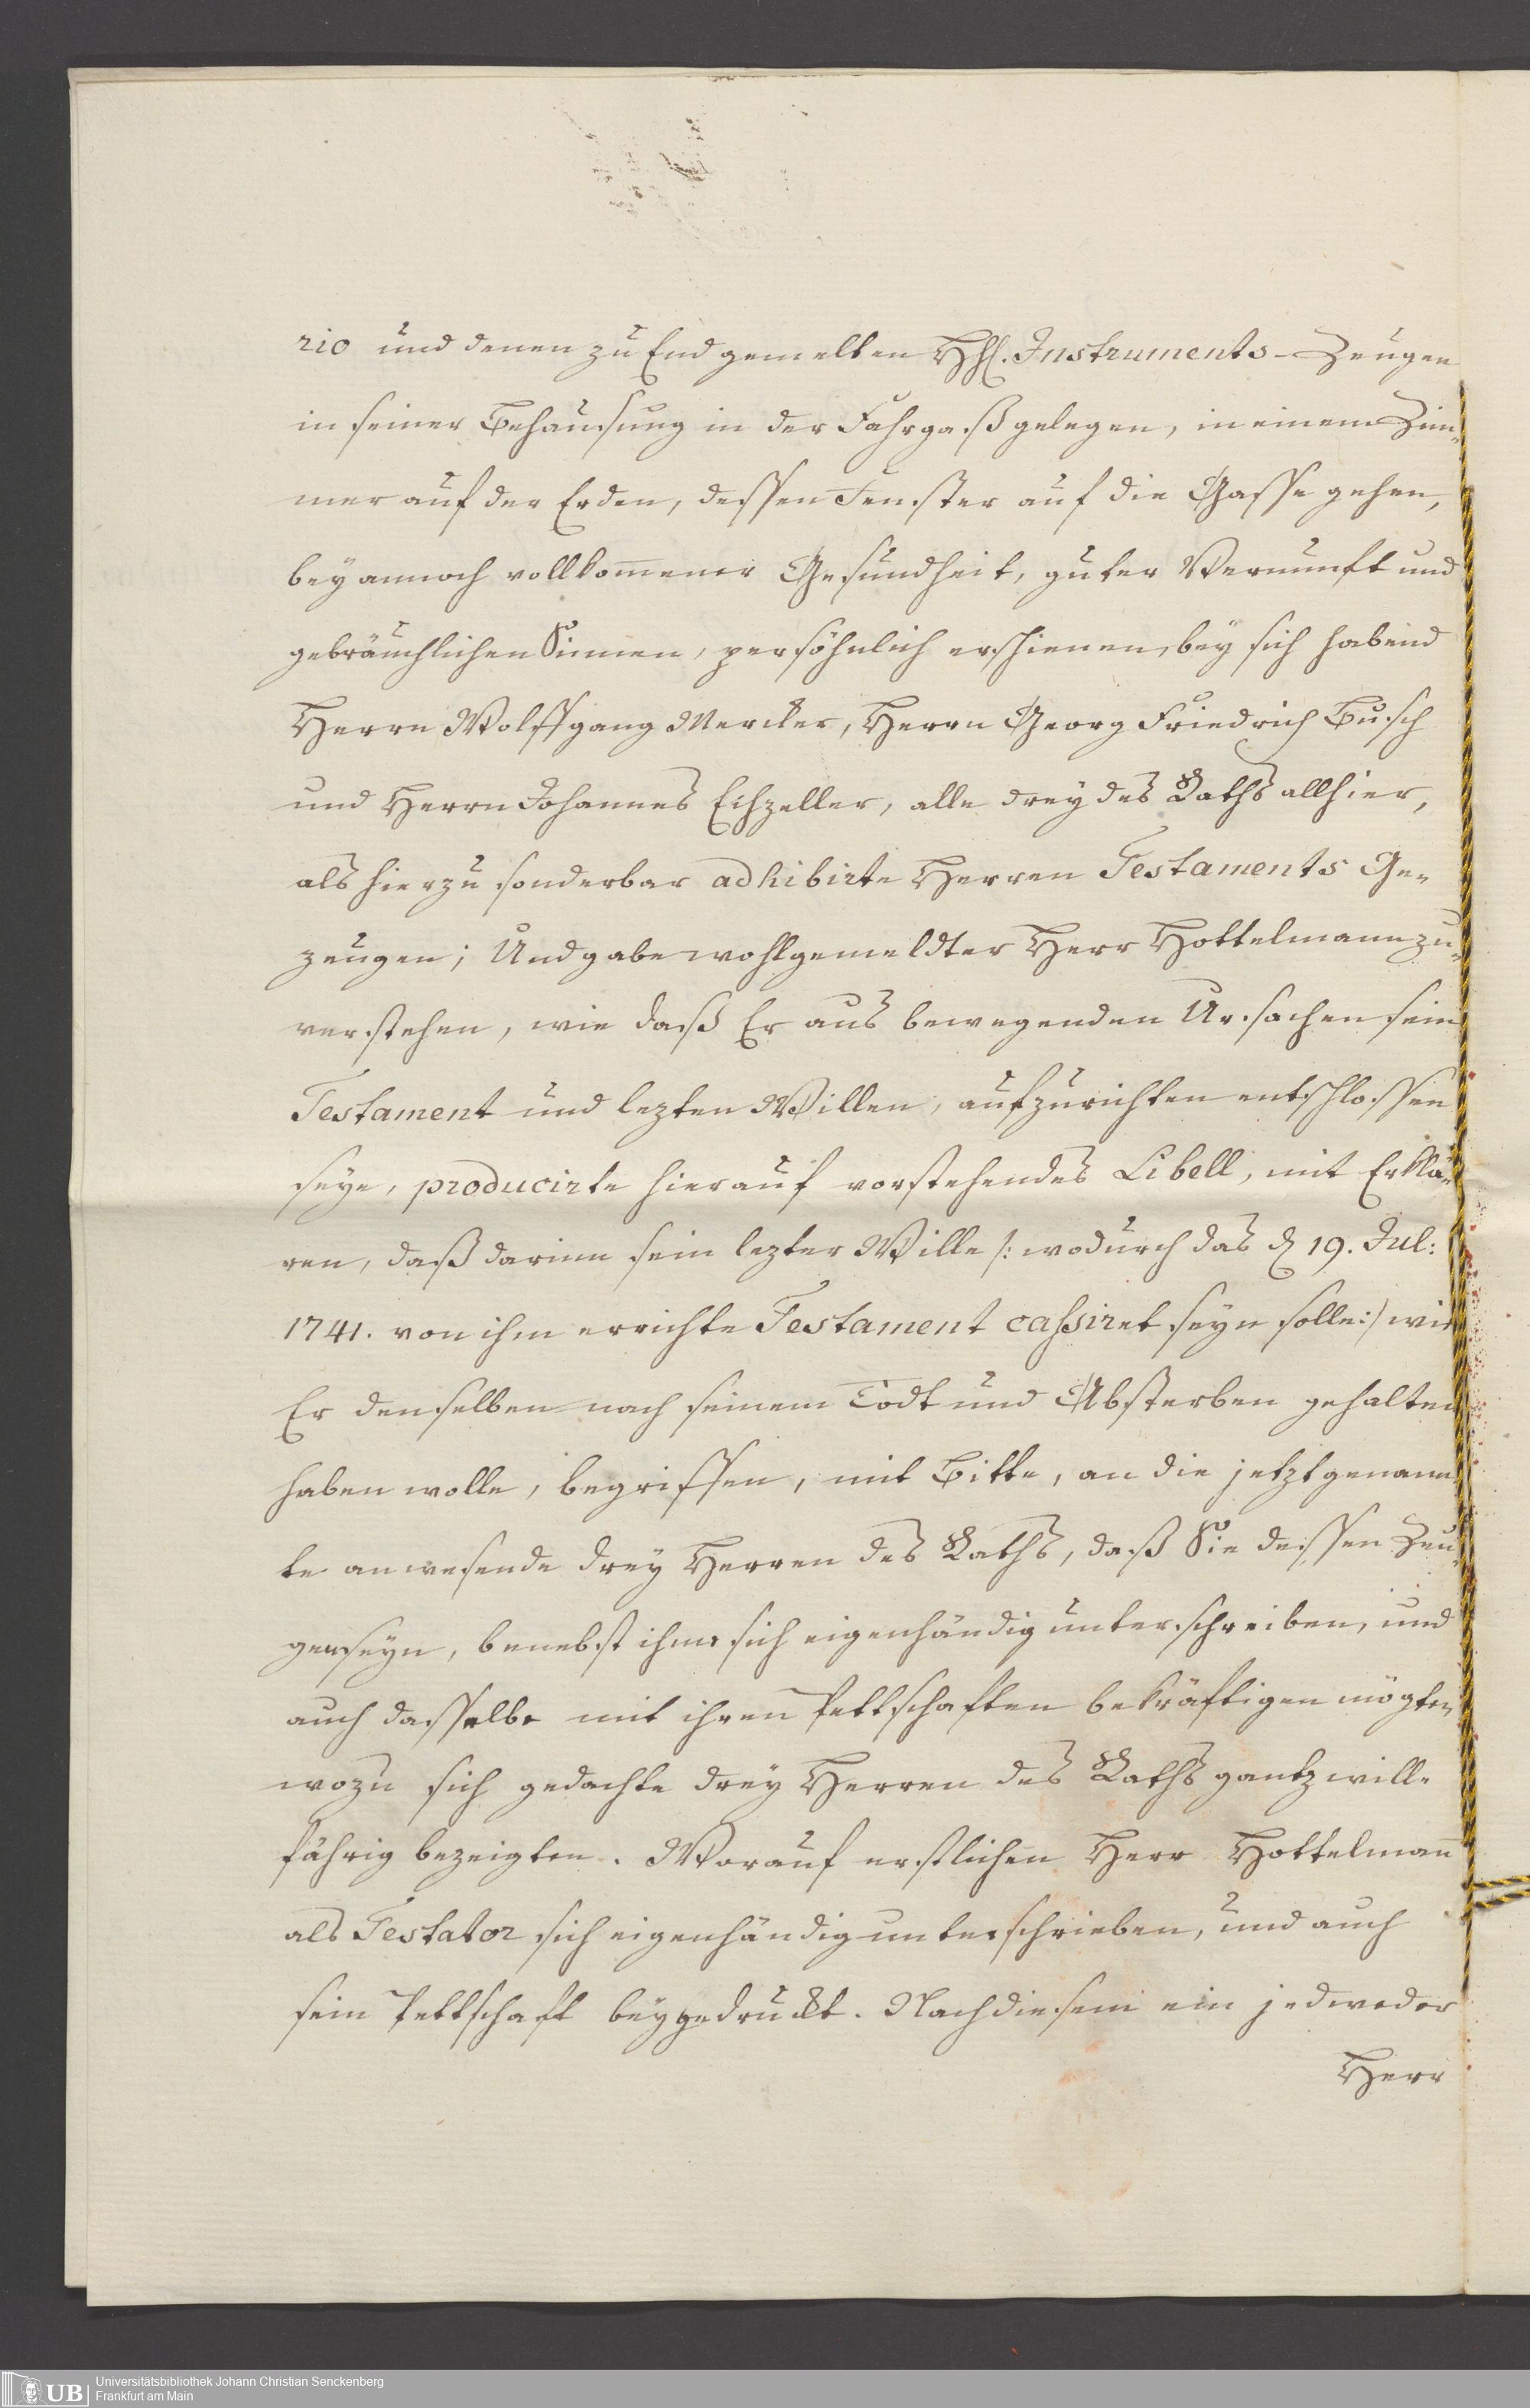 rio und denen zu End gemelten HHl. Instruments-Zeugen
in seiner Behausung in der Fahrgaß gelegen, in einem Zim-
mer auf der Erden, dessen Fenster auf die Gasse gehen,
bey annoch vollkom̄ener Gesundheit, guter Vernunft und
gebräuchlichen Sinnen, persöhnlich erschienen, bey sich habend
Herrn Wolffgang Mercker, Herrn Georg Friedrich Busch
und Herrn Johannes Eichzeller, alle drey des Raths allhier,
als hierzu sonderbar adhibirte Herren Testaments Ge-
zeugen; Und gabe wohlgemeldter Herr Hottelmann zu-
verstehen, wie daß Er aus bewegenden Ursachen sein
Testament und lezten Willen, aufzurichten entschlossen
seye, producirte hierauf vorstehendes Libell, mit Erklä-
ren, daß darinn sein lezter Wille /: wodurch das d 19. Jul:
1741. von ihm errichte Testament cassiret seyn solle :/ wie
Er denselben nach seinem Todt und Absterben gehalten
haben wolle, begriffen, mit Bitte, an die jetztgenann
te anwesende drey Herren des Raths, daß Sie dessen Zeu-
gen seyn, benebst ihme sich eigenhändig unterschreiben, und
auch dasselbe mit ihren Pettschaften bekräftigen mögten,
wozu sich gedachte drey Herren des Raths gantz will-
fährig bezeigten. Worauf erstlichen Herr Hottelman̄
als Testator sich eigenhändig unterschrieben, und auch
sein Pettschaft beygedruckt. Nach diesem ein jedweder
Herr
UB Universitätsbibliothek Johann Christian Senckenberg
Frankfurt am Main